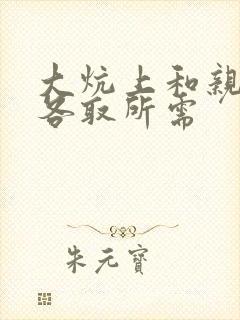 大炕上和親
各取所需
朱元寶